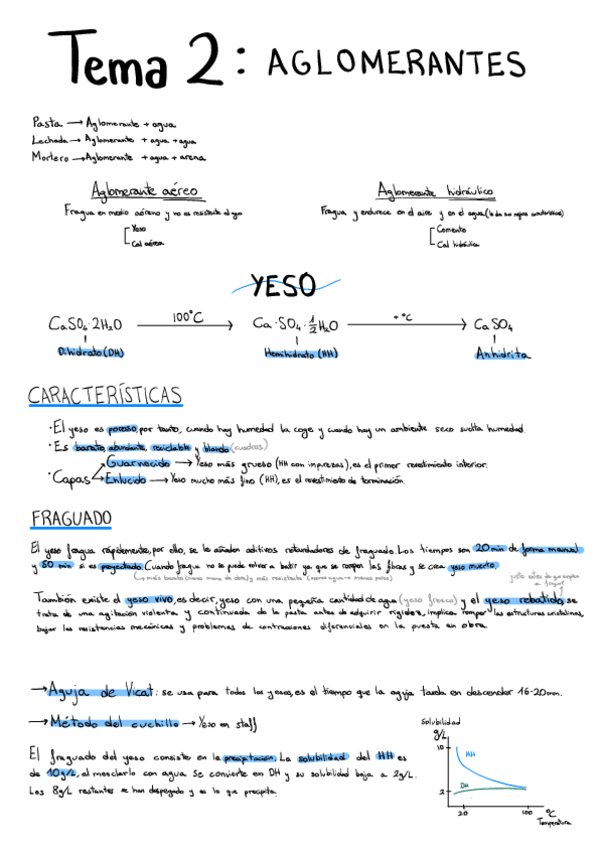 Tema 2: AGLOMERANTES
Pasta → Aglomerante + agua
Lechada → Aglomerante + agua + agua
Mortero → Aglomerante + agua + arena
Aglomerante aéreo
Aglomerante hidráulico
Fragua en medio aéreo y no es resistente al agua
Fragua y endurece en el aire y en el agua
Yeso
Cal aérea
Cemento
Cal hidráulica
YESO
CaSO4·2H2O 100°C Ca·SO4·½H2O +°C CaSO4
Dihidrato (DH)
Hemihidrato (HH)
Anhidrita
CARACTERÍSTICAS
· El yeso es poroso, por tanto, cuando hay humedad la coge y cuando hay un ambiente seco suelta humedad.
· Es barato, abundante, reciclable y blando (cuadros)
· Capas
Guarnecido → Yeso más grueso (HH con impurezas), es el primer revestimiento interior.
Enlucido → Yeso mucho más fino (HH), es el revestimiento de terminación.
FRAGUADO
El yeso fragua rápidamente, por ello, se le añaden aditivos retardadores de fraguado. Los tiempos son 20 min de forma manual
y 50 min si es proyectado. Cuando fragua no se puede volver a batir ya que se rompen las fibras y se crea yeso muerto.
más barato (menos mano de obra) y más resistente (menos agua = menos poros)
justo antes de que empiece a fraguar
También existe el yeso vivo, es decir, yeso con una pequeña cantidad de agua (yeso fresco) y el yeso rebatido, se
trata de una agitación violenta y continuada de la pasta antes de adquirir rigidez, implica romper las estructuras cristalinas,
bajar las resistencias mecánicas y problemas de contracciones diferenciales en la puesta en obra.
→ Aguja de Vicat: se usa para todos los yesos, es el tiempo que la aguja tarda en descender 16-20mm.
→ Método del cuchillo → Yeso en staff
El fraguado del yeso consiste en la precipitación. La solubilidad del HH es
de 10g/L, al mezclarlo con agua se convierte en DH y su solubilidad baja a 2g/L.
Los 8g/L restantes se han despegado y es lo que precipita.
Solubilidad
g/L
10
HH
DH
2
20
100
°C
Temperatura